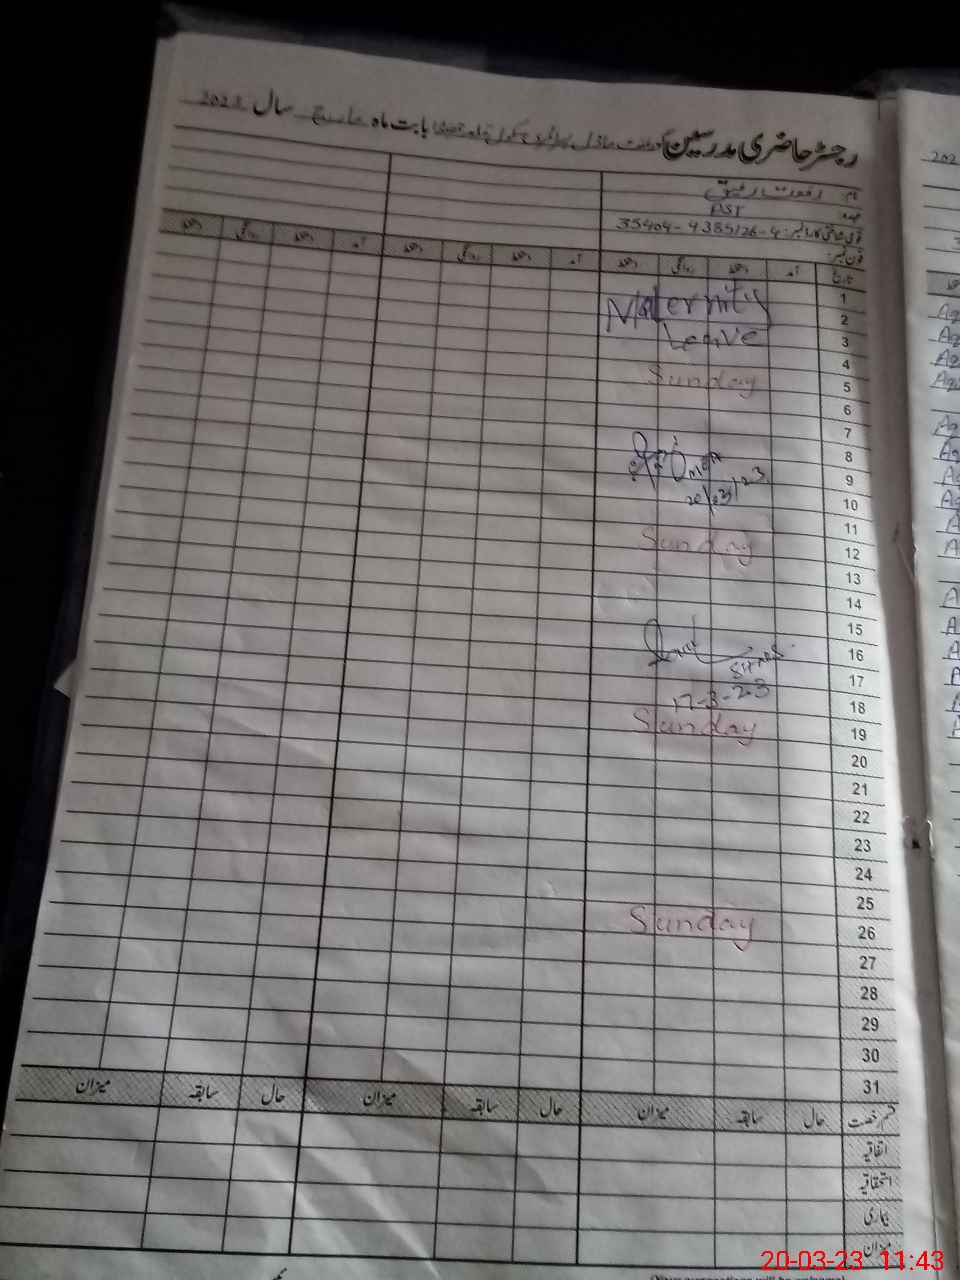 رجسٹر حاضری مدرسین گورنمنٹ ماڈل پرائمری سکول بابت ماہ مارچ سال 2023
نام: رفعت رفیق
عہدہ: PST
قومی شناختی کارڈ نمبر: 35404-4385126-4
فون نمبر:
تاریخ آمد دستخط روانگی دستخط آمد دستخط روانگی دستخط آمد دستخط روانگی دستخط
1
Maternity
2
3
Leave
4
5
Sunday
6
7
8
9
10
11
12
Sunday
13
14
15
16
17
17-3-23
18
19
Sunday
20
21
22
23
24
25
26
Sunday
27
28
29
30
31
قسم رخصت حال سابقہ میزان حال سابقہ میزان حال سابقہ میزان
اتفاقیہ
استحقاقیہ
بیماری
میزان
20-03-23 11:43